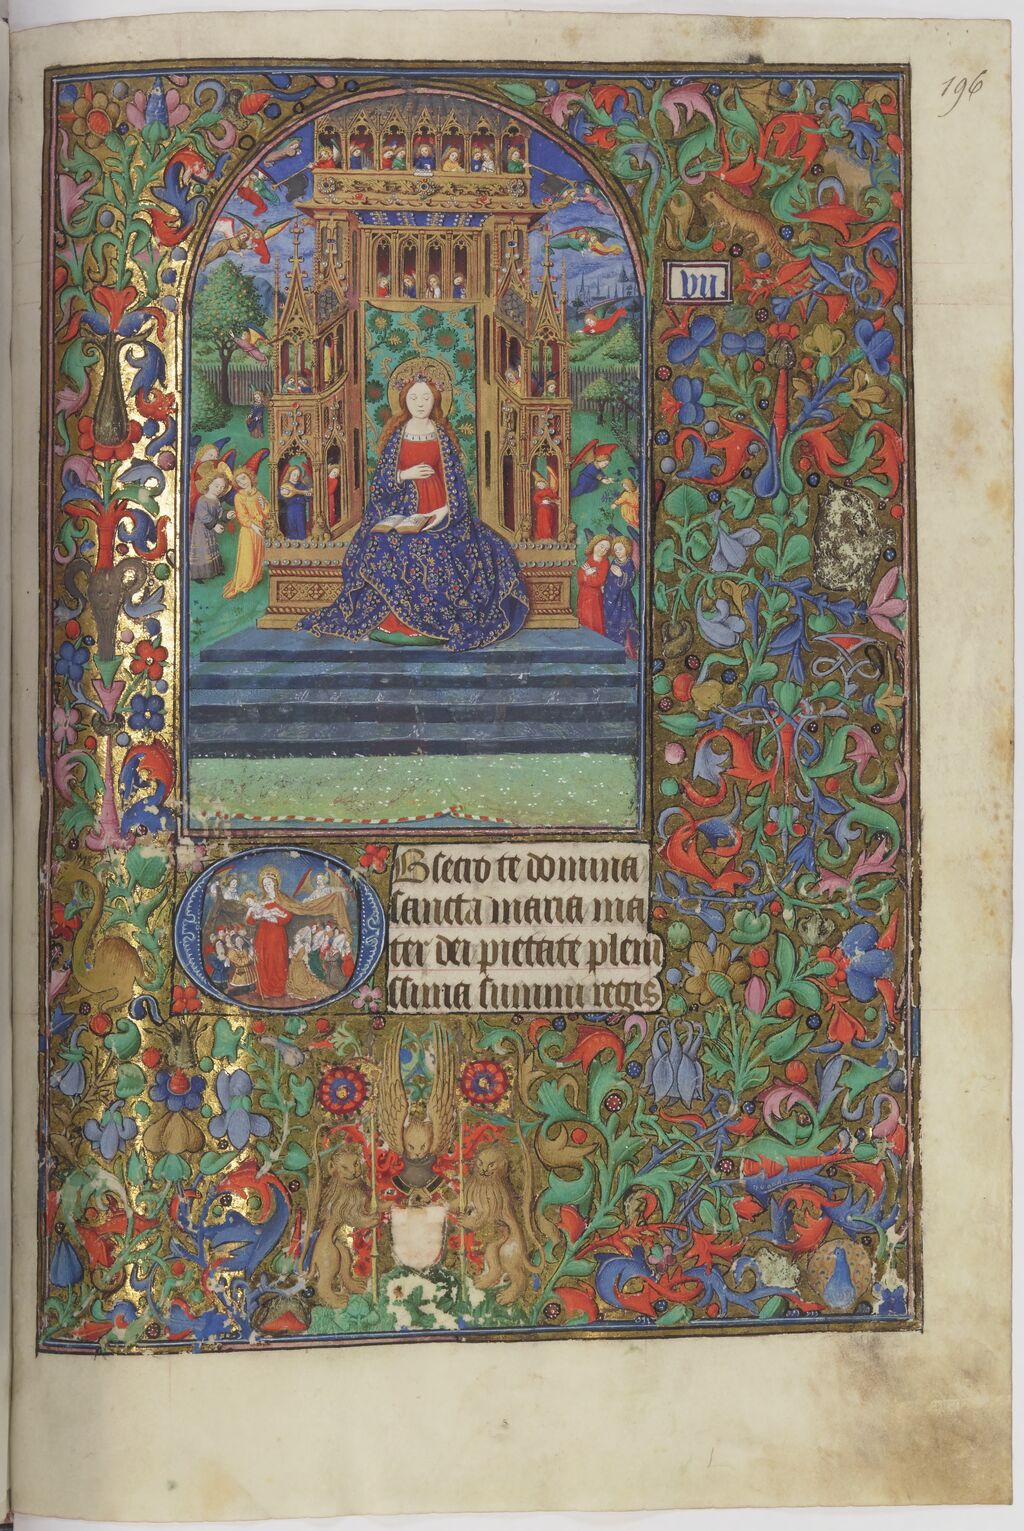 196
vii.
Obsecro te domina
sancta maria ma
ter dei pietate pleni
ssima summi regis